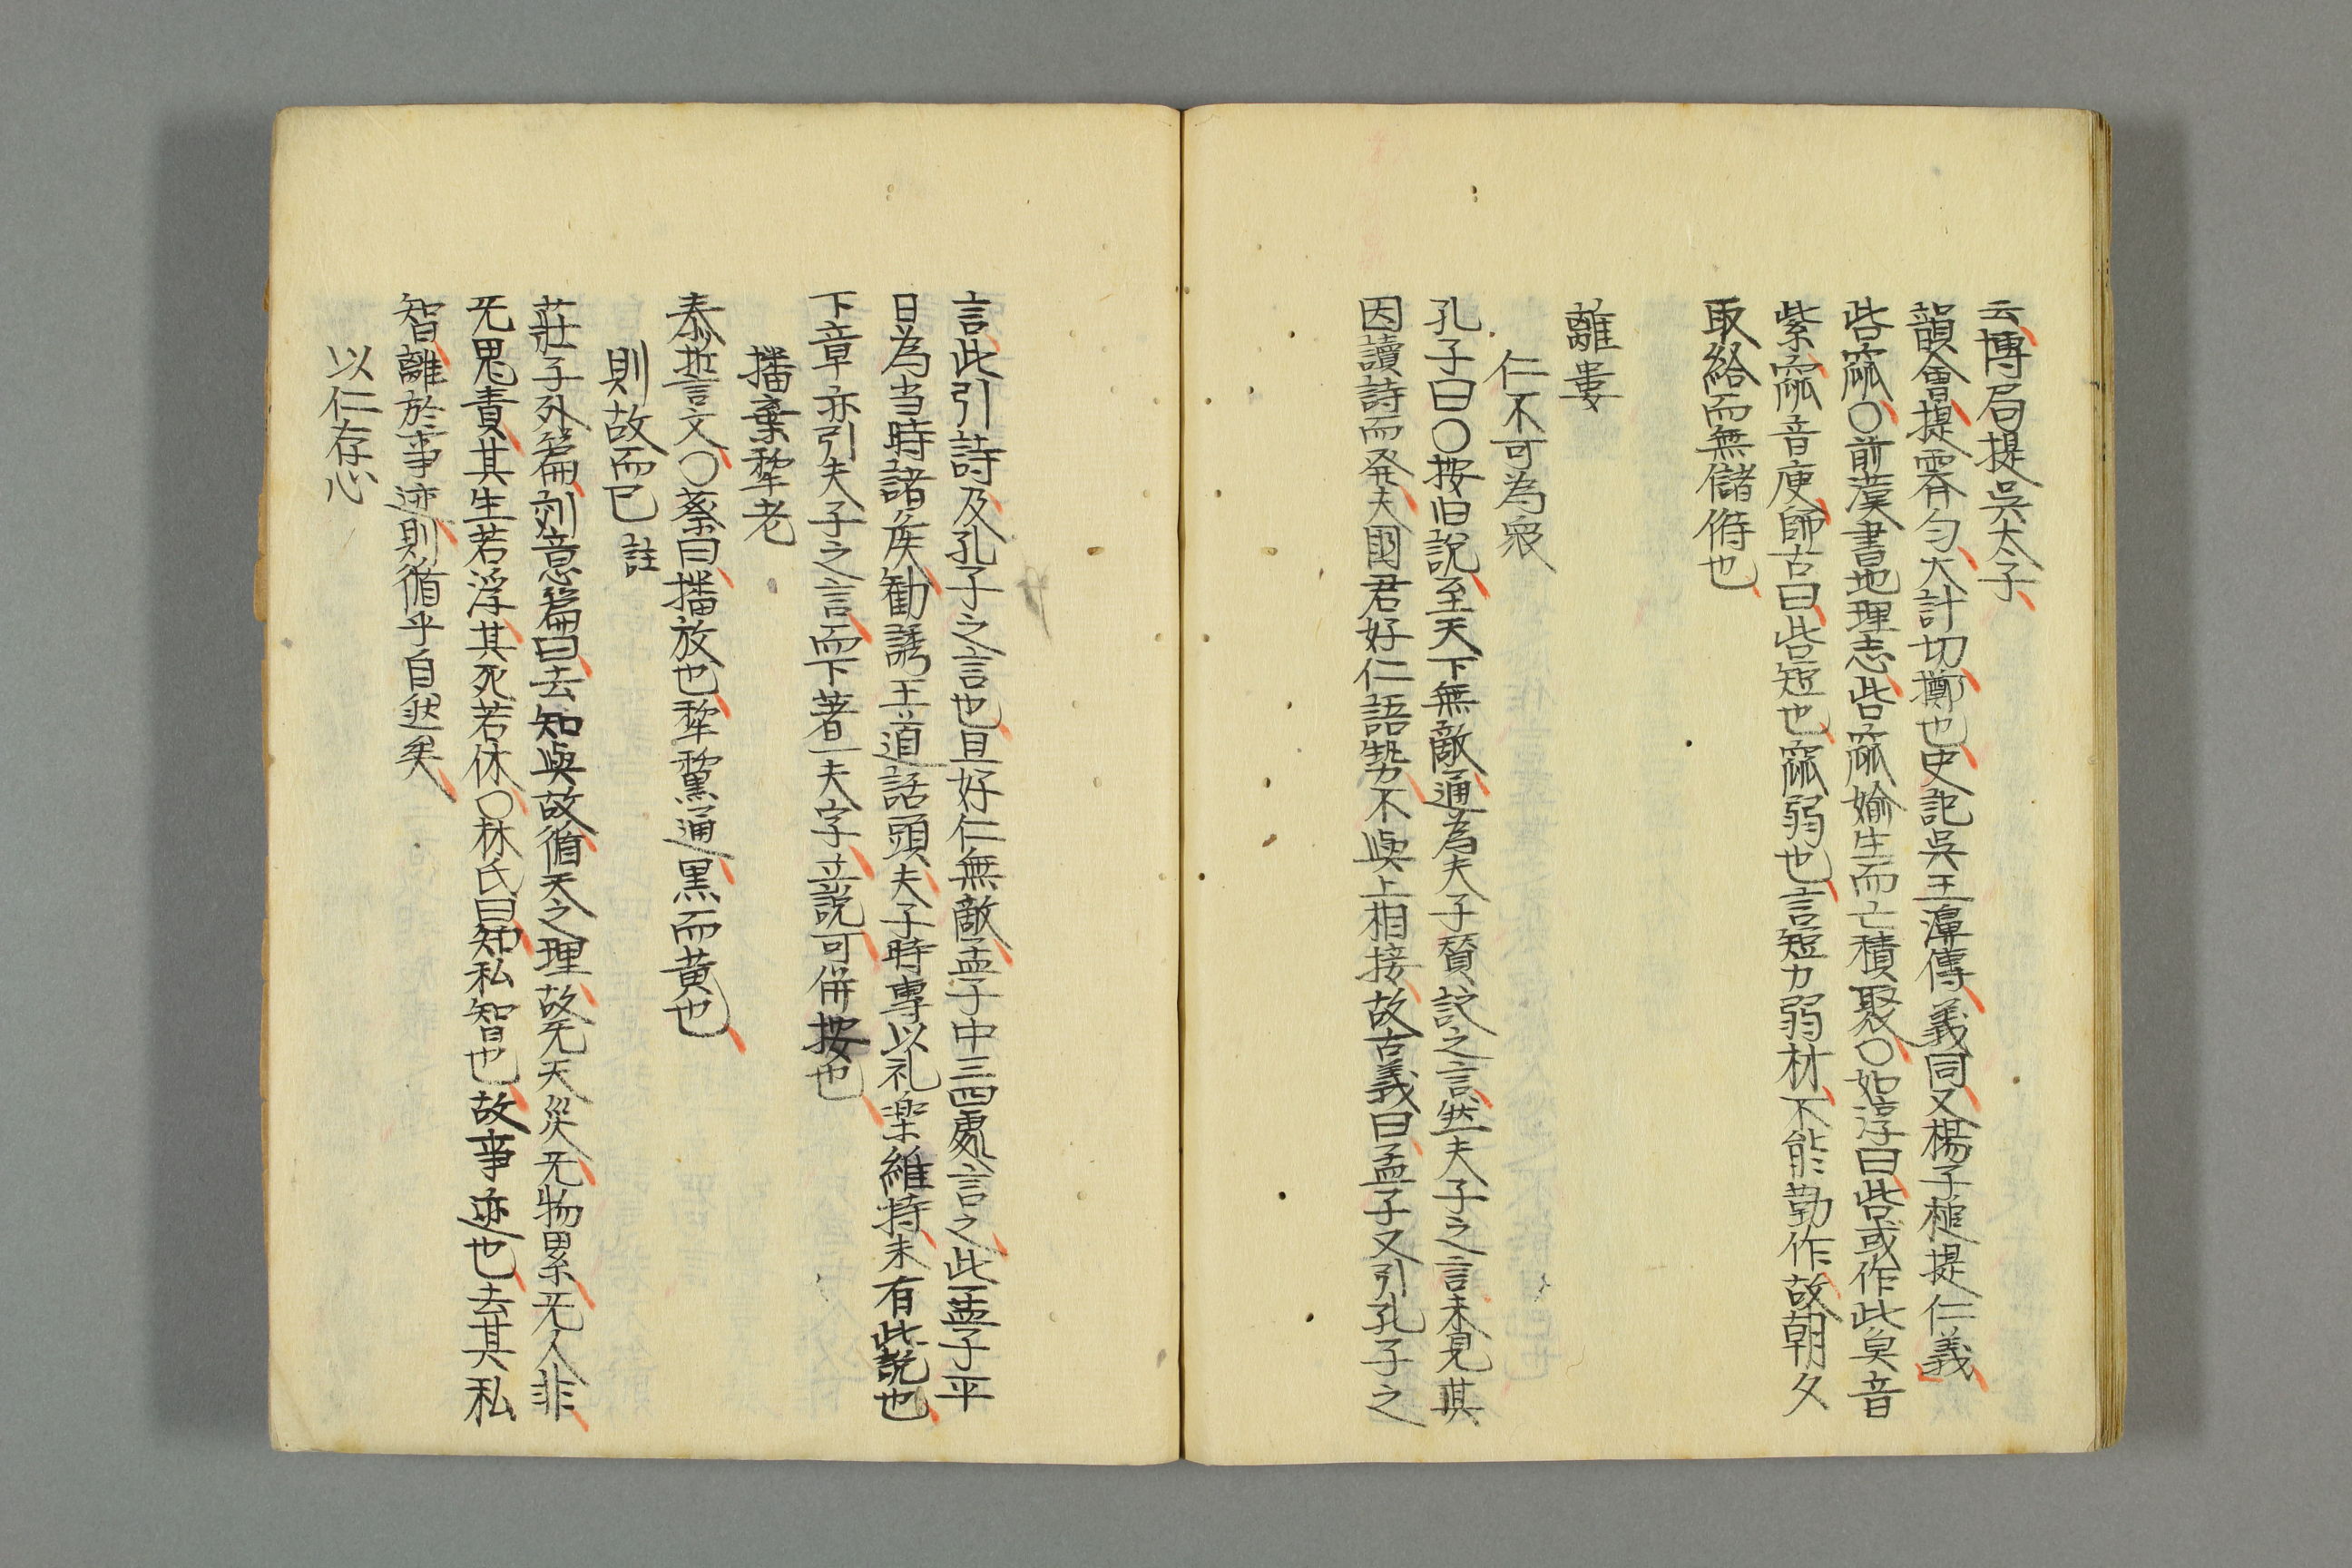 云博局提吳大子
韻會提霽勻大計切擲也史記吳王濞傳義同又楊子槌提仁義
呰窳〇前漢書地理志呰窳媮生而亡積聚〇如淳曰呰或作此𠔥音
紫窳音庾師古曰呰短也窳弱也言短力弱材不能勤作故朝夕
取給而無儲偫也
離婁
仁不可為衆
孔子曰〇按旧說至天下無敵通為夫子賛詩之言然夫子之言未見其
因讀詩而発夫國君好仁語勢不與上相接故古義曰孟子又引孔子之
言此引詩及孔子之言也且好仁無敵孟子中三四處言之此孟子平
日為当時諸侯勧誘王道話頭夫子時專以礼楽維持未有此説也
下章亦引夫子之言而下著一夫字立説可併按也
播棄犂老
泰誓文〇蔡曰播放也犂黧通黒而黄也
則故而已 註
莊子外篇刻意篇曰去知與故循天之理故无天災无物累无人非
无鬼責其生若浮其死若休〇林氏曰知私智也故事迹也去其私
智離於事迹則循乎自然矣
以仁存心